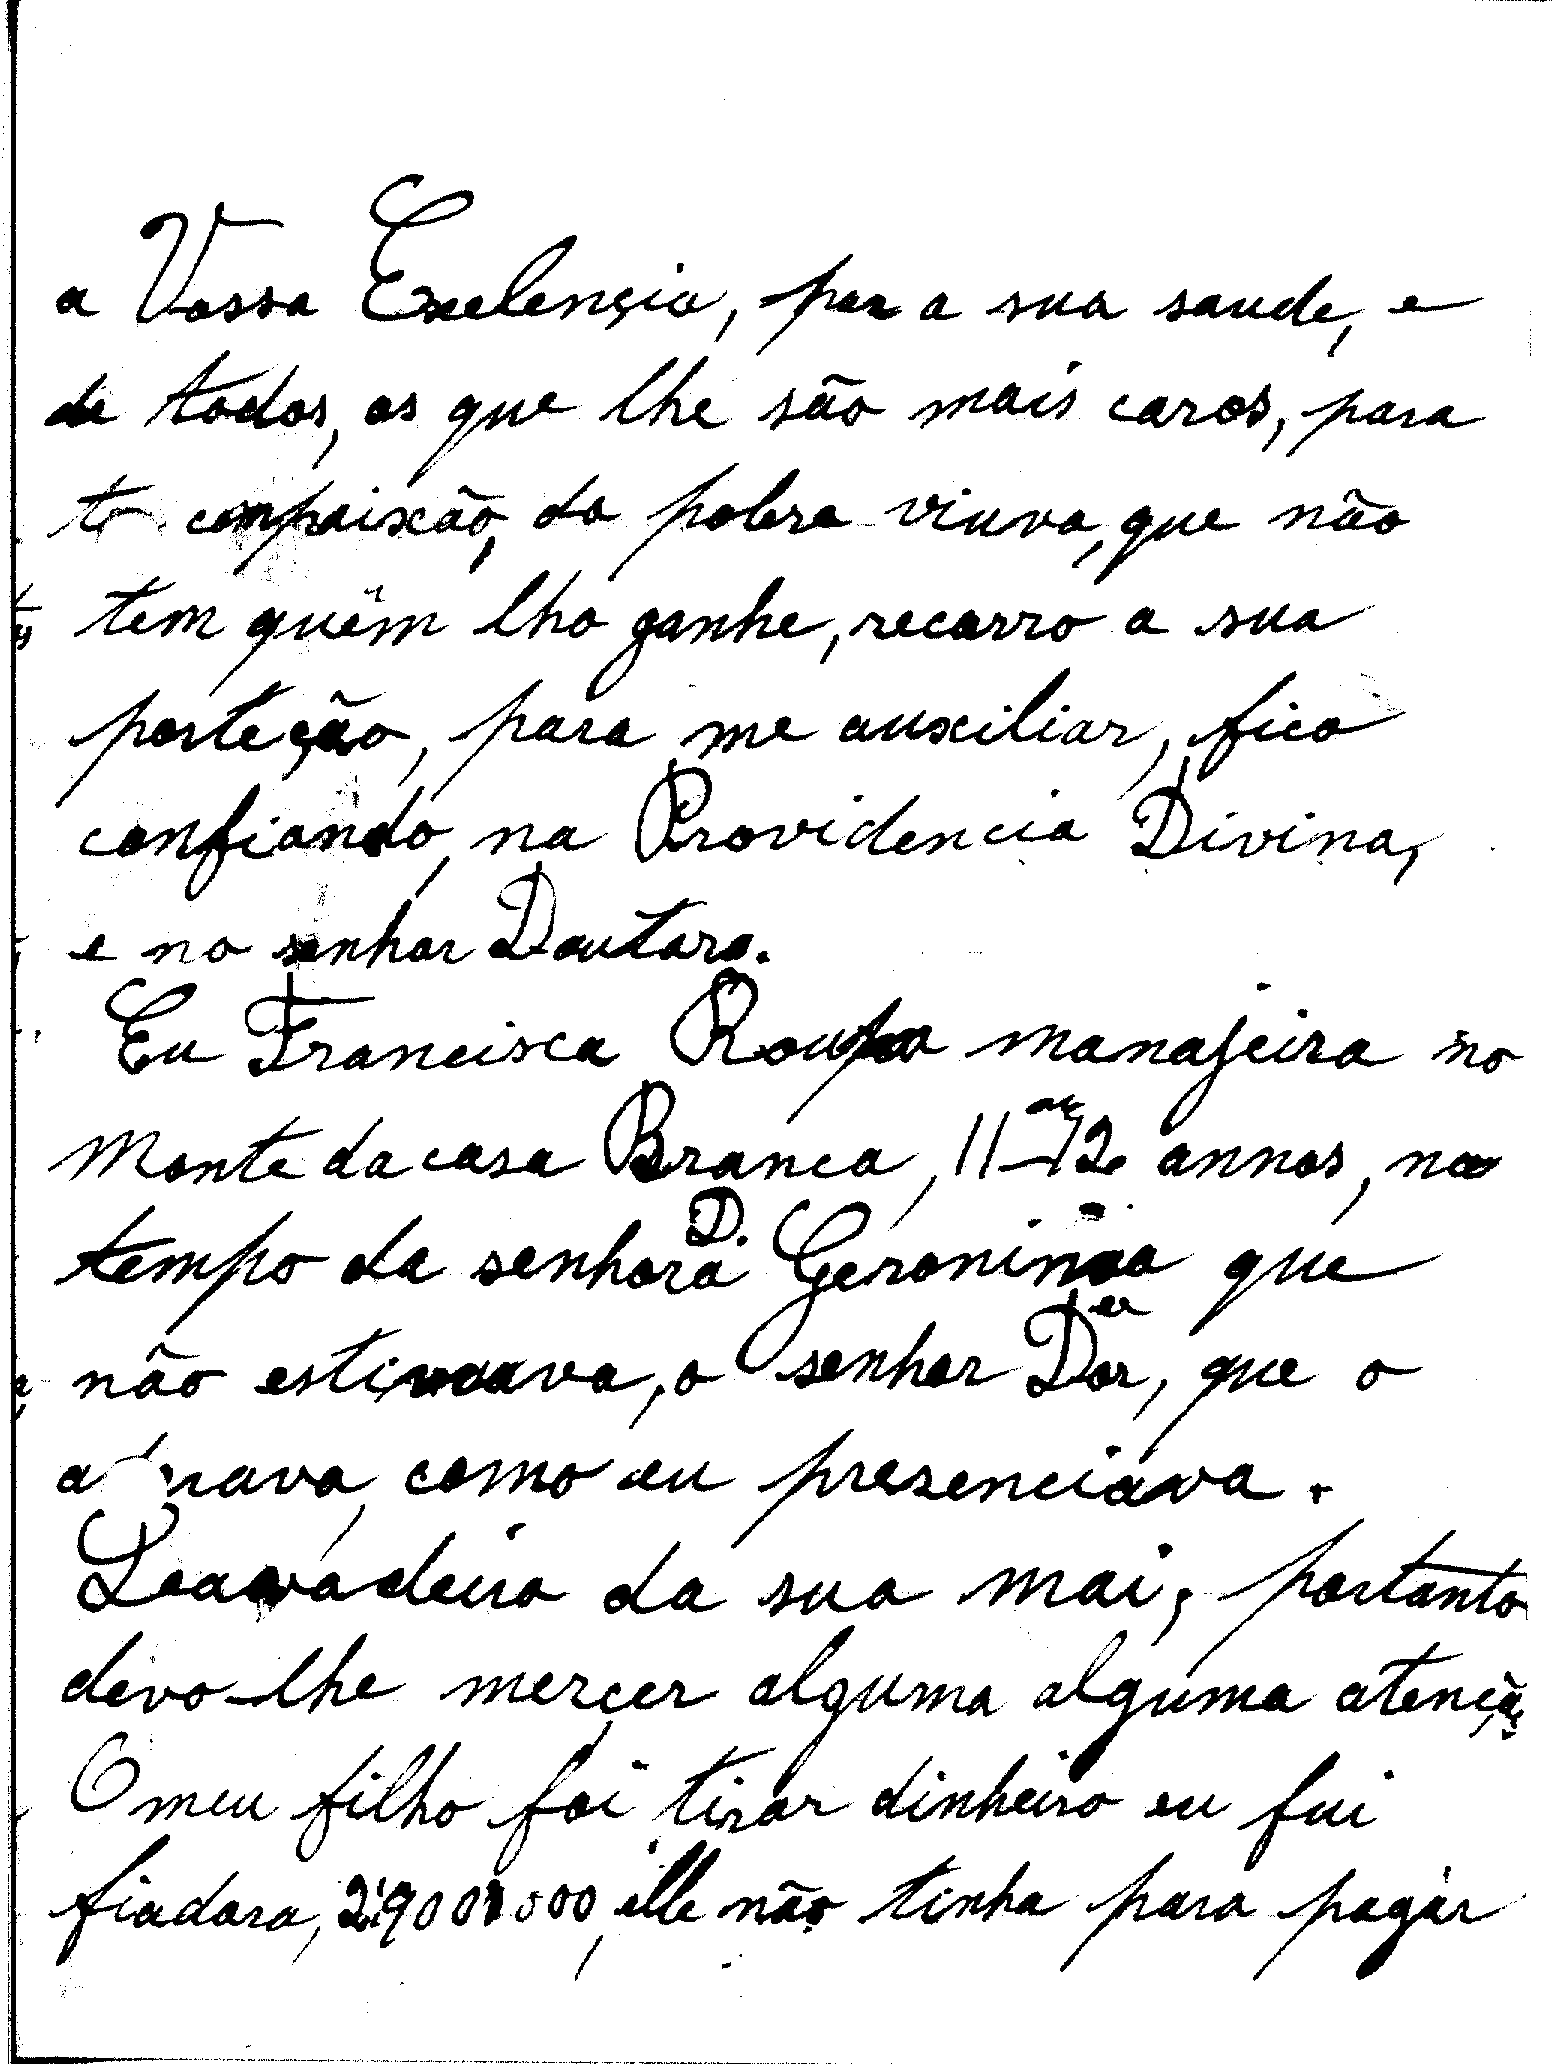 a Vossa Exelençia, per a sua saude, e
de todos, os que lhe são mais caros, para
te compaixão, da pobre viuva, que não
tem quêm lho ganhe, recorro a sua
porteção, para me auxiliar, fico
confiando, na Providencia Divina,
e no senhor Doutoro.
Eu Francisca Roupa manajeira no
Monte da casa Branca, 11 ou 12 annos, no
tempo da senhora D. Geronima que
não estimava, o senhor Dor, que o
como eu presenciava.
da sua mai, portanto
devo-lhe merçer alguma alguma atenção
O meu filho foi tirar dinheiro eu fui
fiadora, elle não tinha para pagar